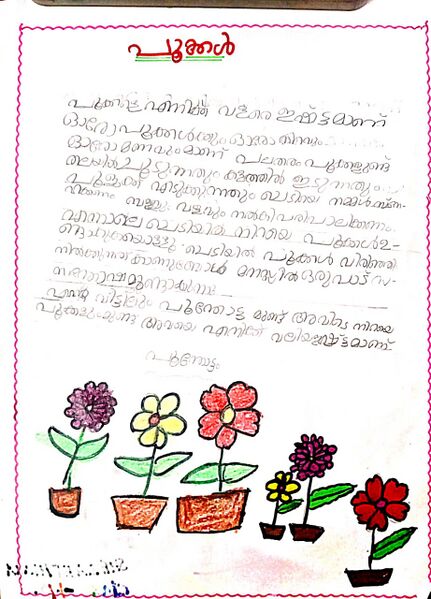 പൂക്കൾ
പൂക്കളെ എനിക്ക് വളരെ ഇഷ്ട്ടമാണ്
ഓരോ പൂക്കൾക്കും ഓരോ നിറവും
ഓരോ മണവുമാണ് പലതരം പൂക്കളുണ്ട്
തലയിൽ ചൂടുന്നതും കളത്തിൽ ഇടുന്നതും
പൂക്കൾ എടുക്കുന്നതും ചെടിയെ നമ്മൾ
വെള്ളവും വളവും നൽകി പരിപാലിക്കണം.
എന്നാലെ ചെടിയിൽ നിറയെ പൂക്കൾ ഉ-
ണ്ടാകുകയൊള്ളു. ചെടിയിൽ പൂക്കൾ വിരിഞ്ഞ്
നിൽക്കുന്നത് കാണുമ്പോൾ മനസ്സിൽ ഒരുപാട് സ-
ന്തോഷമുണ്ടാകുന്നു
എന്റെ വീട്ടിലും പൂന്തോട്ടമുണ്ട് അവിടെ നിറയെ
പൂക്കളുമുണ്ട് അവയെ എനിക്ക് വലിയ ഇഷ്ട്ടമാണ്.
പൂന്തോട്ടം